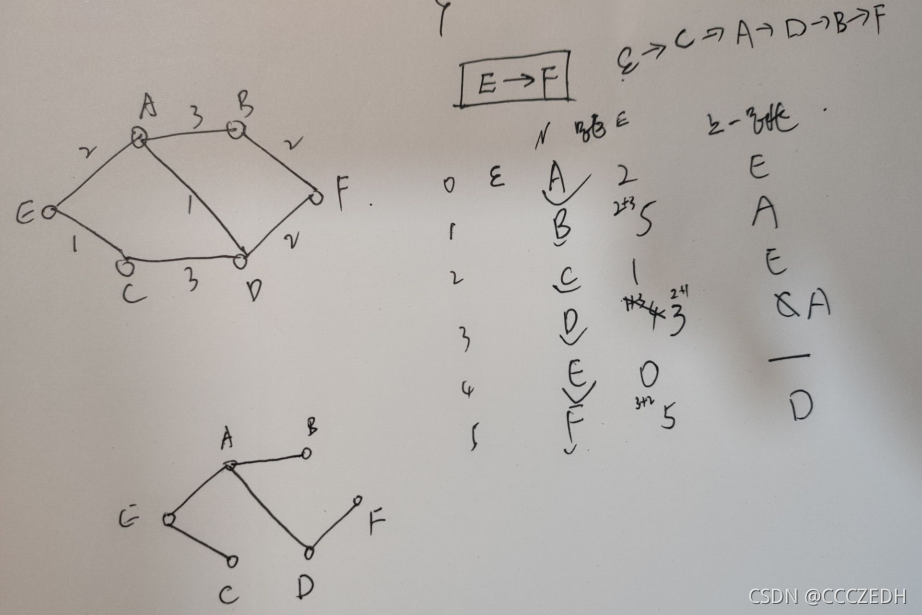 E → F
E → C → A → D → B → F
A 3 B
2 2
E 1 F .
1 2
C 3 D
N 距离 E 上一个节点
0 E A 2 E
1 B 2+3 5 A
2 C 1 E
3 D 1+3 4 2+1 3 C A
4 E 0 —
5 F 3+2 5 D
A B
E F
C D
CSDN @CCCZEDH